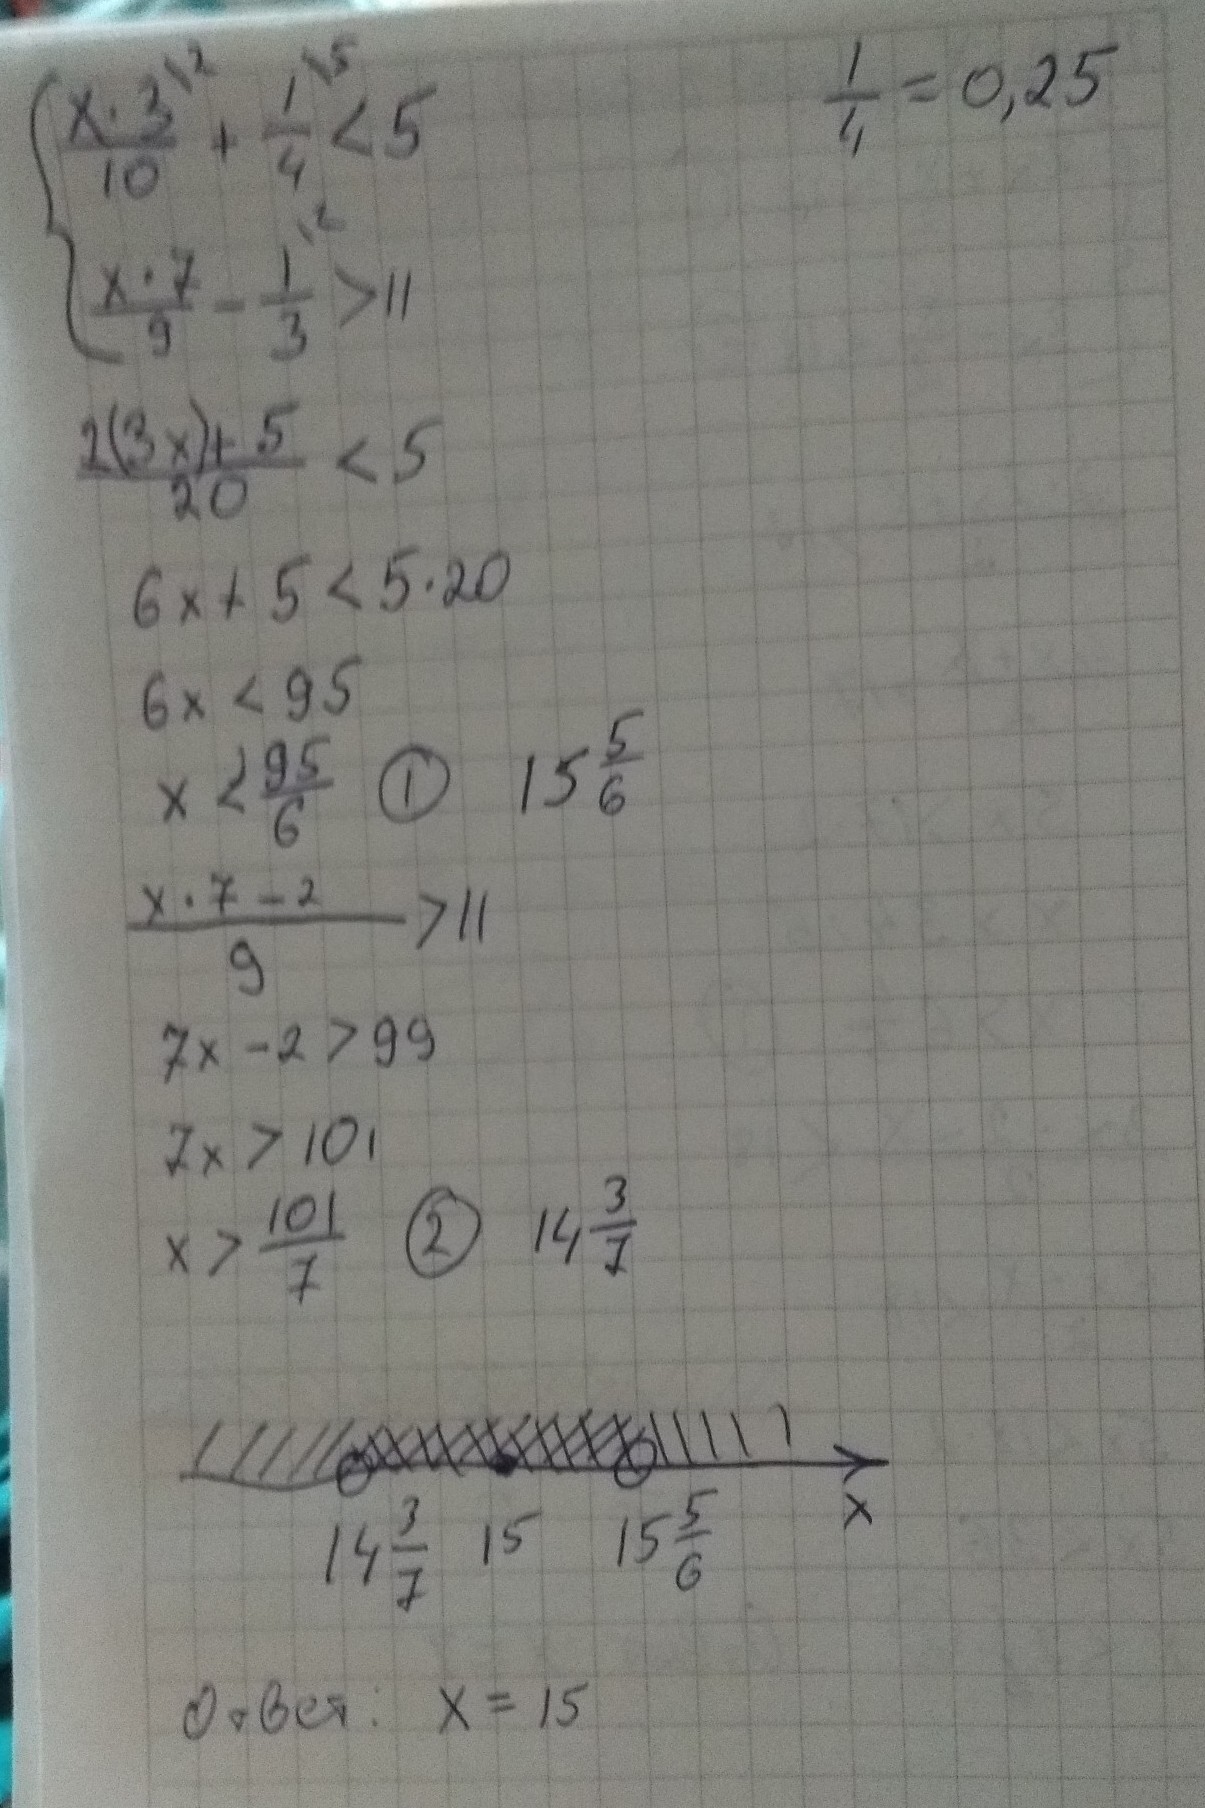 x·3\2/10 + 1\5/4 < 5    1/4 = 0,25
x·7/9 - 1\2/3 > 11
2(3x)+5/20 < 5
6x + 5 < 5·20
6x < 95
x < 95/6 ① 15 5/6
x·7-2/9 > 11
7x - 2 > 99
7x > 101
x > 101/7 ② 14 3/7
14 3/7 15 15 5/6 x
Ответ: x = 15